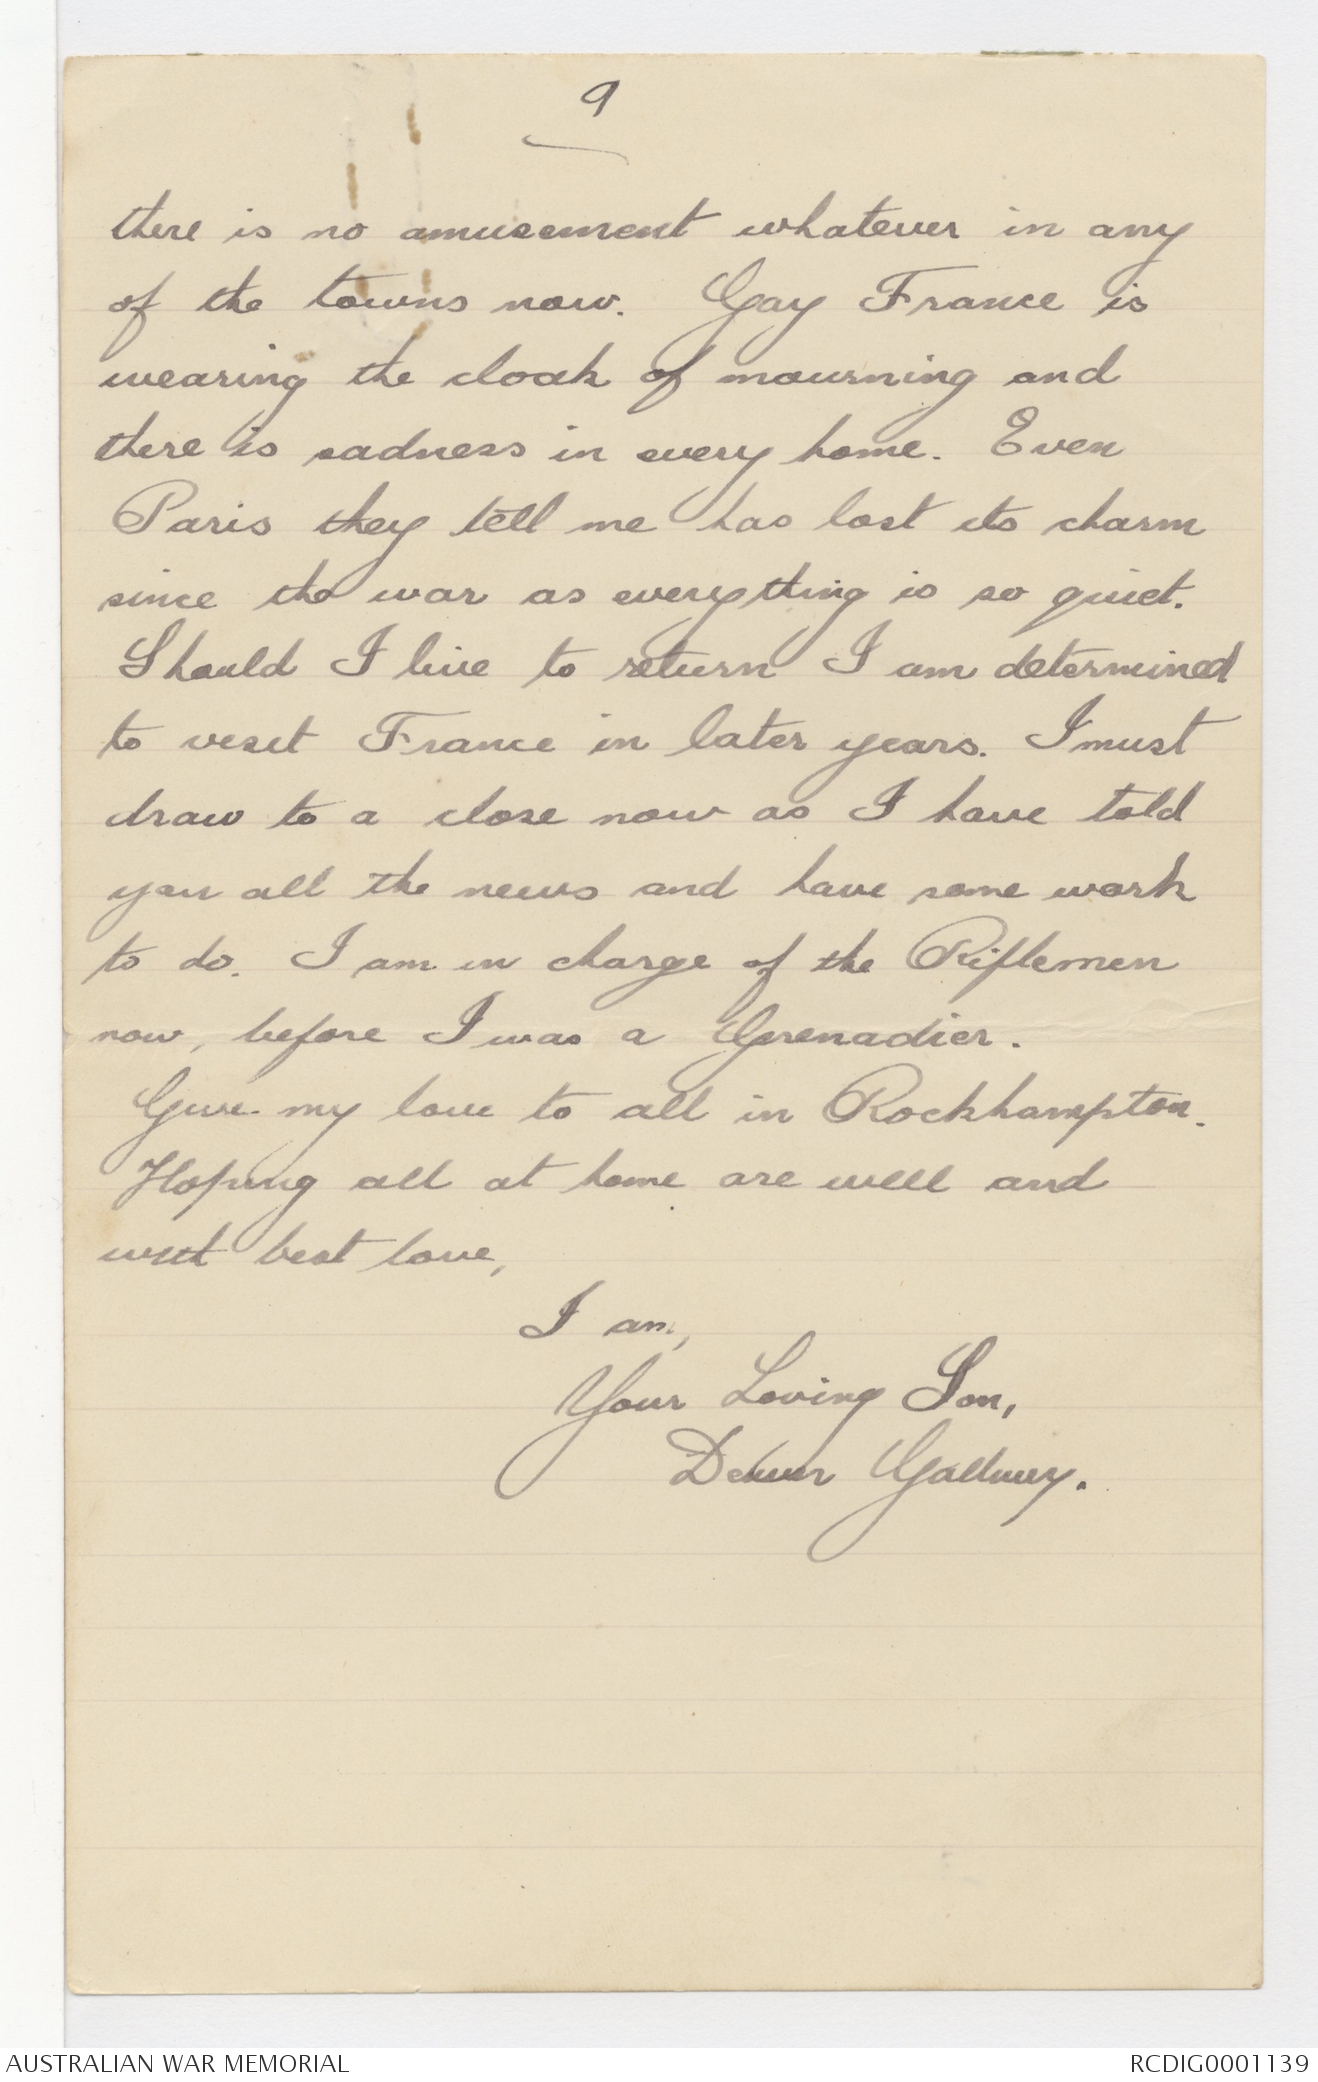 9
there is no amusement whatever in any
of the towns now. Gay France is
wearing the cloak of mourning and
there is sadness in every home. Even
Paris they tell me has lost its charm
since the war as everything is so quiet.
Should I live to return I am determined
to visit France in later years. I must
draw to a close now as I have told
you all the news and have some work
to do. I am in charge of the Riflemen
now, before I was a Grenadier.
Give my love to all in Rockhampton.
Hoping all at home are well and
with best love,
I am,
Your Loving Son,
Gallwey.
AUSTRALIAN WAR MEMORIAL
RCDIG0001139